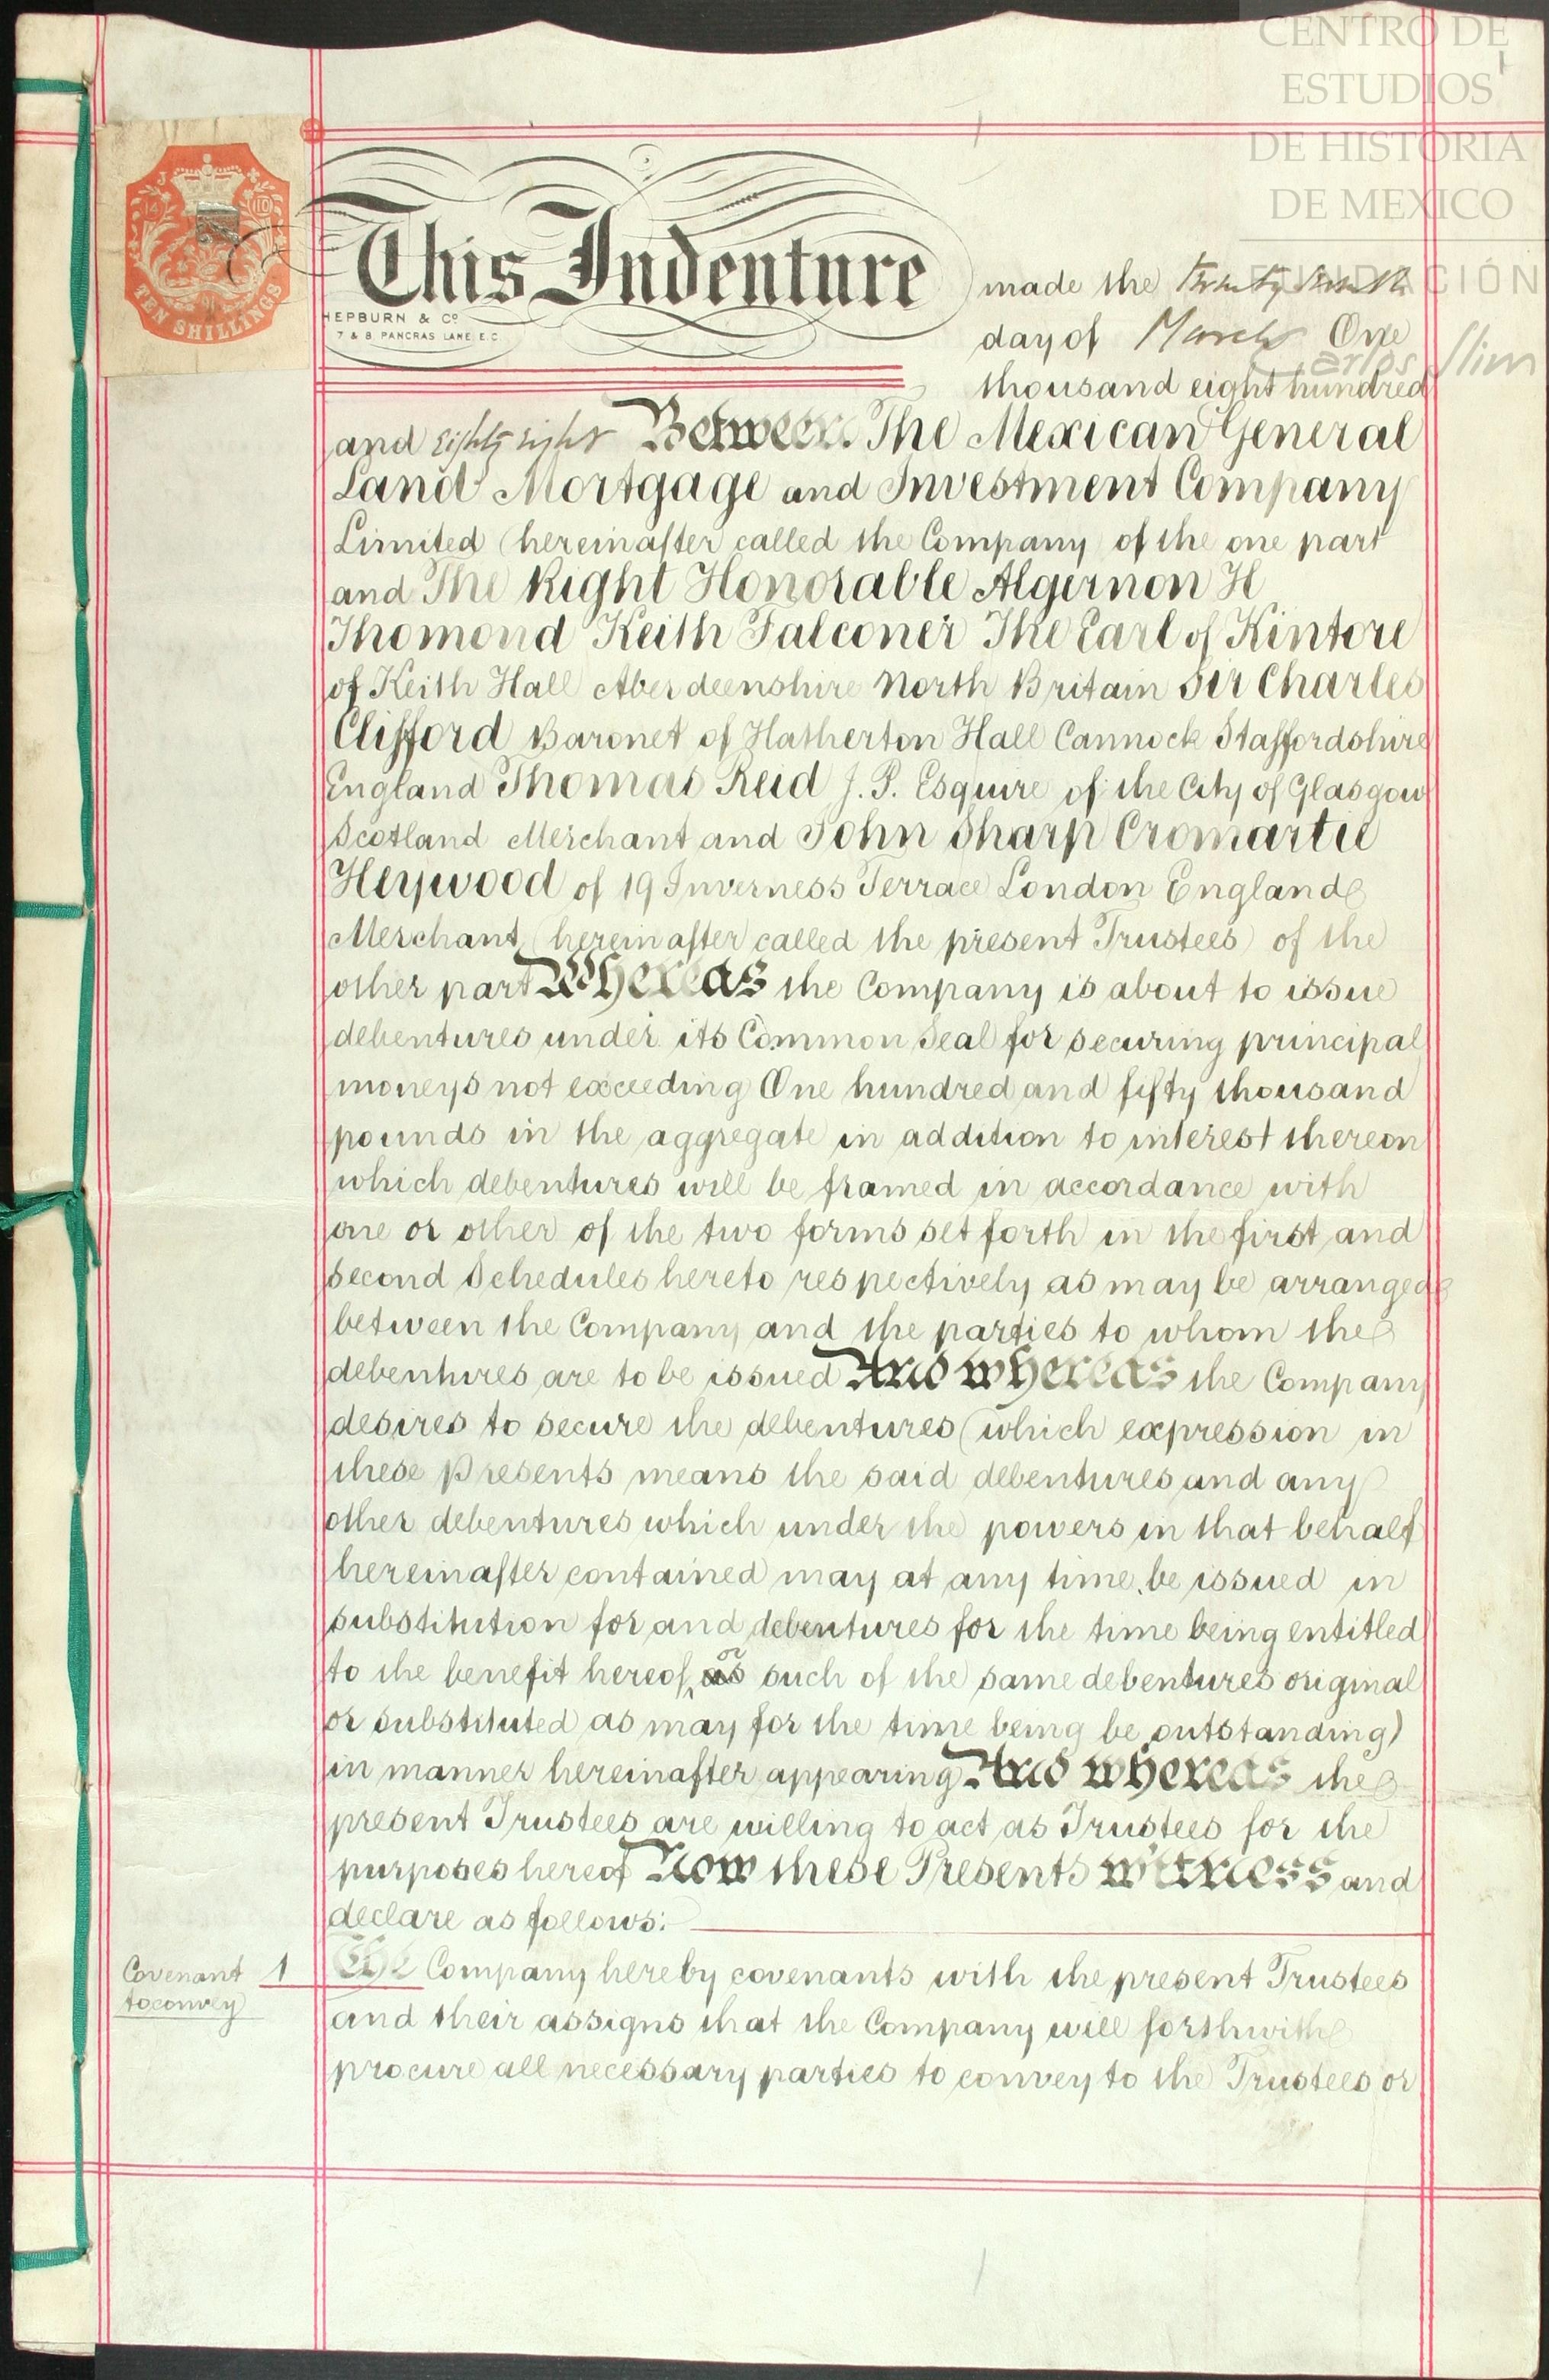 CENTRO DE
ESTUDIOS
DE HISTORIA
DE MEXICO
FUNDACIÓN
Carlos Slim
1
TEN SHILLINGS
This Indenture made the
HEPBURN & Co
7 & 8 PANCRAS LANE E.C.
day of March One
thousand eight hundred
and eighty eight Between The Mexican General
Land Mortgage and Investment Company
Limited (hereinafter called the Company) of the one part
and The Right Honorable Algernon H
Thomond Keith Falconer The Earl of Kintore
of Keith Hall Aberdeenshire North Britain Sir Charles
Clifford Baronet of Hatherton Hall Cannock Staffordshire
England Thomas Reid J. P. Esquire of the City of Glasgow
Scotland Merchant and John Sharp Cromartie
Heywood of 19 Inverness Terrace London England
Merchant (hereinafter called the present Trustees) of the
other part Whereas the Company is about to issue
debentures under its Common Seal for securing principal
moneys not exceeding One hundred and fifty thousand
pounds in the aggregate in addition to interest thereon
which debentures will be framed in accordance with
one or other of the two forms set forth in the first and
second Schedules hereto respectively as may be arranged
between the Company and the parties to whom the
debentures are to be issued And whereas the Company
desires to secure the debentures (which expression in
these Presents means the said debentures and any
other debentures which under the powers in that behalf
hereinafter contained may at any time be issued in
substitution for and debentures for the time being entitled
or
to the benefit hereof as such of the same debentures original
or substituted as may for the time being be outstanding)
in manner hereinafter appearing And whereas the
present Trustees are willing to act as Trustees for the
purposes hereof Now these Presents witness and
declare as follows:
Covenant to convey
1 The Company hereby covenants with the present Trustees
and their assigns that the Company will forthwith
procure all necessary parties to convey to the Trustees or